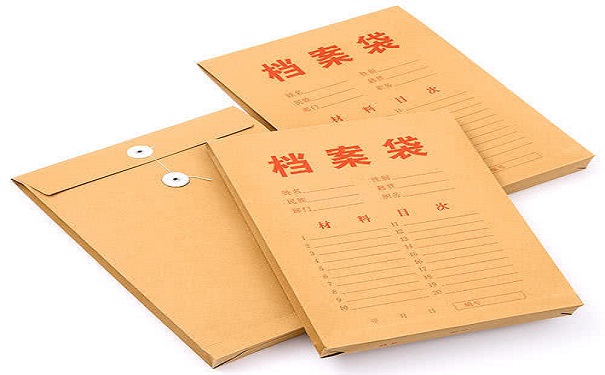 档案袋
姓名 性别
民族 籍贯
部门 职务
材料目次
档案袋
姓名 性别
民族 籍贯
部门 职务
材料目次
1 11
2 12
3 13
4 14
5 15
6 16
7 17
8 18
9 19
10 20
年 月 日 编号